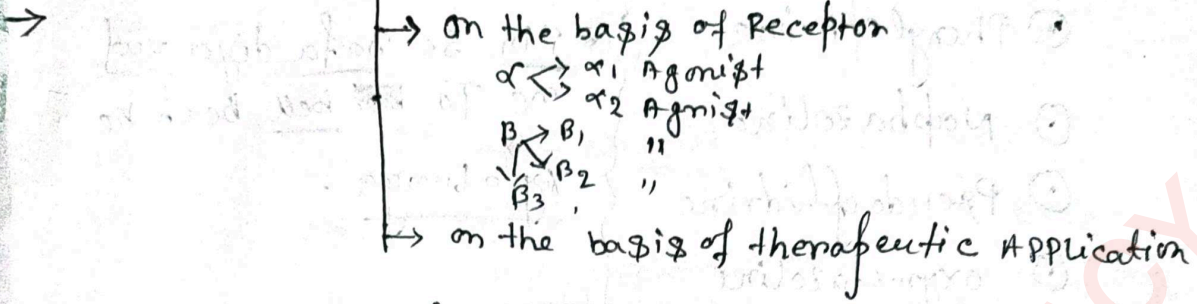 → → on the basis of Receptor
α → α1 Agonist
→ α2 Agnist
β → β1 "
β2 "
β3 '
→ on the basis of therapeutic Application
CY